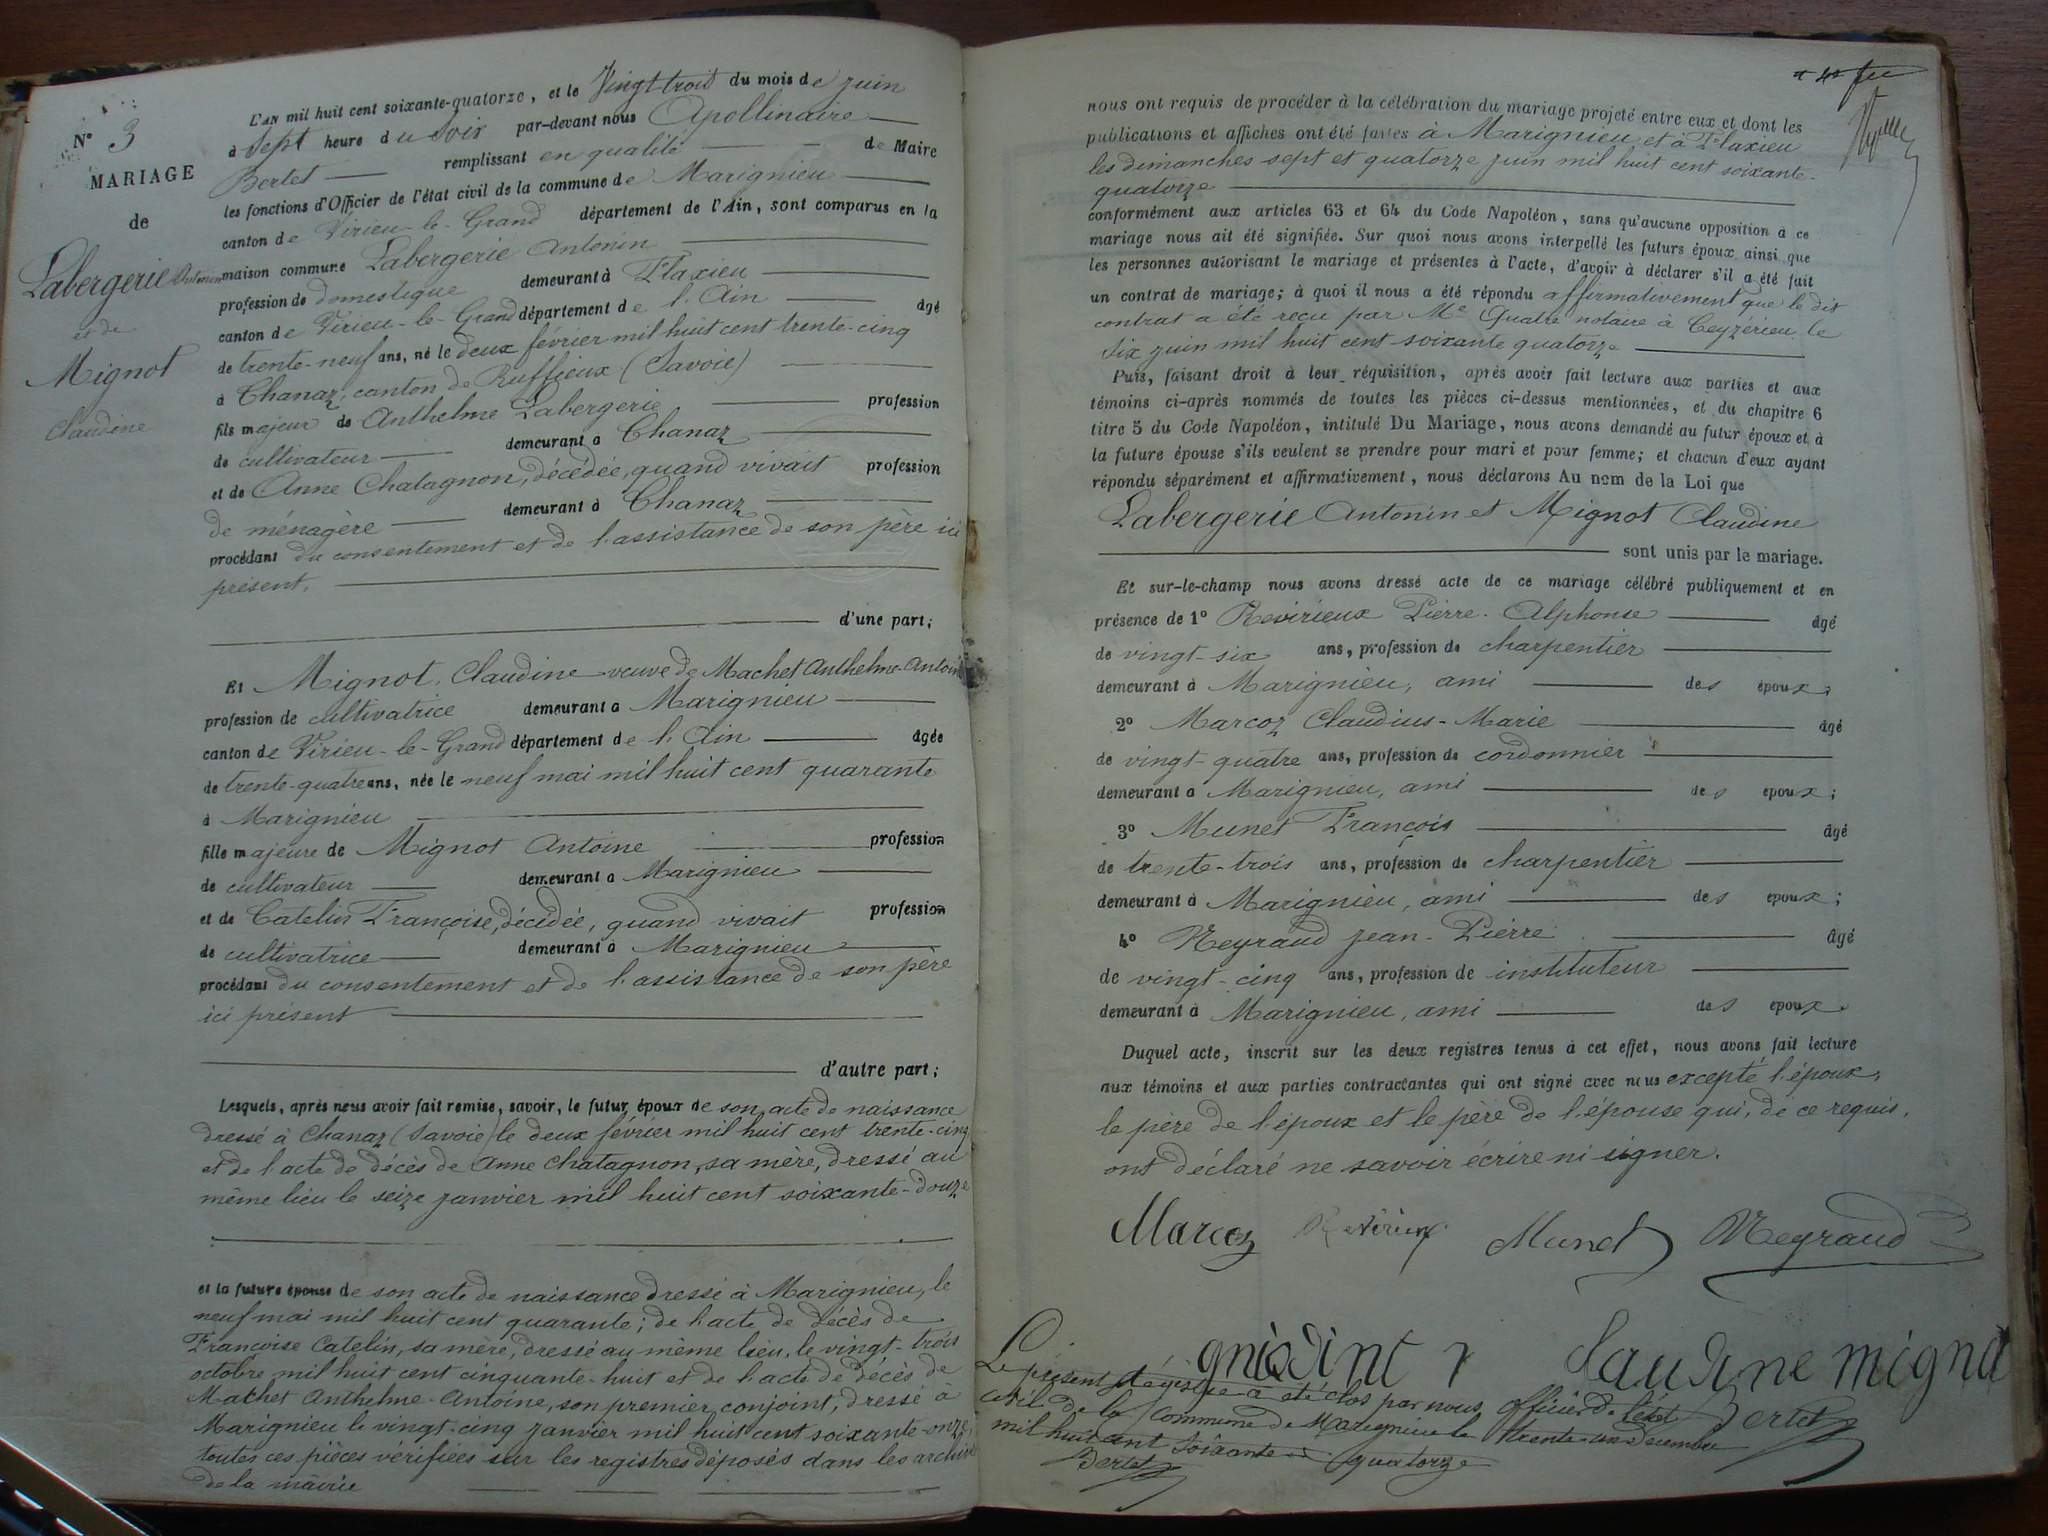 N° 3
MARIAGE
de
Labergerie Antonin
et de
Mignot
Claudine
L'AN mil huit cent soixante-quatorze, et le Vingt trois du mois de juin
à Sept heure du Soir par-devant nous Apollinaire
Bertet remplissant en qualité de Maire
les fonctions d'Officier de l'état civil de la commune de Marignieu
canton de Virieu-le-Grand département de l'Ain, sont comparus en la
maison commune Labergerie Antonin
profession de domestique demeurant à Flaxieu
canton de Virieu-le-Grand département de l'Ain âgé
de trente-neuf ans, né le deux février mil huit cent trente-cinq
à Chanaz, canton de Ruffieux (Savoie)
fils majeur de Anthelme Labergerie profession
de cultivateur demeurant à Chanaz
et de Anne Chatagnon, décédée, quand vivait profession
de ménagère demeurant à Chanaz
procédant du consentement et de l'assistance de son père ici
présent,
d'une part;
Et Mignot Claudine veuve de Machet Anthelme-Antoine
profession de cultivatrice demeurant à Marignieu
canton de Virieu-le-Grand département de l'Ain âgée
de trente-quatre ans, née le neuf mai mil huit cent quarante
à Marignieu
fille majeure de Mignot Antoine profession
de cultivateur demeurant à Marignieu
et de Catelin Françoise, décédée, quand vivait profession
de cultivatrice demeurant à Marignieu
procédant du consentement et de l'assistance de son père
ici présent
d'autre part;
Lesquels, après nous avoir fait remise, savoir, le futur époux de son acte de naissance
dressé à Chanaz (Savoie) le deux février mil huit cent trente-cinq
et de l'acte de décès de Anne Chatagnon, sa mère, dressé au
même lieu le seize janvier mil huit cent soixante-douze
et la future épouse de son acte de naissance dressé à Marignieu, le
neuf mai mil huit cent quarante; de l'acte de décès de
Françoise Catelin, sa mère, dressé au même lieu, le vingt-trois
octobre mil huit cent cinquante-huit et de l'acte de décès de
Machet Anthelme-Antoine, son premier conjoint, dressé à
Marignieu le vingt-cinq janvier mil huit cent soixante-onze,
toutes ces pièces vérifiées sur les registres déposés dans les archives
de la mairie
nous ont requis de procéder à la célébration du mariage projeté entre eux et dont les
publications et affiches ont été faites à Marignieu et à Flaxieu
les dimanches sept et quatorze juin mil huit cent soixante-
quatorze
conformément aux articles 63 et 64 du Code Napoléon, sans qu'aucune opposition à ce
mariage nous ait été signifiée. Sur quoi nous avons interpellé les futurs époux ainsi que
les personnes autorisant le mariage et présentes à l'acte, d'avoir à déclarer s'il a été fait
un contrat de mariage; à quoi il nous a été répondu affirmativement que le dit
contrat a été reçu par Me Quatre notaire à Ceyzérieu le
six juin mil huit cent soixante quatorze
Puis, faisant droit à leur réquisition, après avoir fait lecture aux parties et aux
témoins ci-après nommés de toutes les pièces ci-dessus mentionnées, et du chapitre 6
titre 5 du Code Napoléon, intitulé Du Mariage, nous avons demandé au futur époux et à
la future épouse s'ils veulent se prendre pour mari et pour femme; et chacun d'eux ayant
répondu séparément et affirmativement, nous déclarons Au nom de la Loi que
Labergerie Antonin et Mignot Claudine
sont unis par le mariage.
Et sur-le-champ nous avons dressé acte de ce mariage célébré publiquement et en
présence de 1° Revirieux Pierre-Alphonse âgé
de vingt-six ans, profession de charpentier
demeurant à Marignieu, ami des époux;
2° Marcoz Claudius-Marie âgé
de vingt-quatre ans, profession de cordonnier
demeurant à Marignieu, ami des époux;
3° Munet François âgé
de trente-trois ans, profession de charpentier
demeurant à Marignieu, ami des époux;
4° Neyraud Jean-Pierre âgé
de vingt-cinq ans, profession de instituteur
demeurant à Marignieu, ami des époux
Duquel acte, inscrit sur les deux registres tenus à cet effet, nous avons fait lecture
aux témoins et aux parties contractantes qui ont signé avec nous excepté l'époux,
le père de l'époux et le père de l'épouse qui, de ce requis,
ont déclaré ne savoir écrire ni signer.
Marcoz Revirieux Munet Neyraud
Claudine mignot
Bertet
Le présent Registre a été clos par nous, officier de l'état
civil de la Commune de Marignieu le trente-un Décembre
mil huit cent soixante quatorze
Bertet